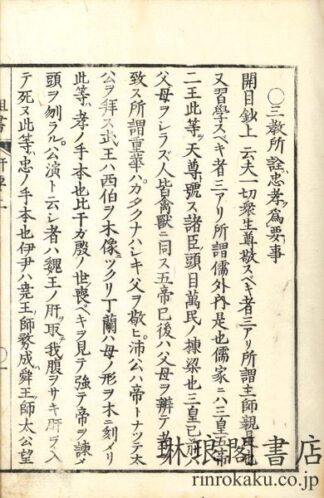 ○三教所詮忠孝爲要事
開目鈔上云夫一切衆生尊敬スベキ者三アリ所謂主師親是也
又習學スベキ者三アリ所謂儒外内是也儒家ニハ三皇五帝
二王此等ヲ天尊ト號ス諸臣ノ頭目萬民ノ棟梁也三皇已前ハ
父母ヲシラズ人皆禽獸ニ同ス五帝已後ハ父母ヲ辨テ孝ヲ
致ス所謂重華ハカタクナハシキ父ヲ敬ヒ沛公ハ帝トナツテ太
公ヲ拜ス武王ハ西伯ヲ木像ニツクリ丁蘭ハ母ノ形ヲ木ニ刻メリ
此等ハ孝ノ手本也比干ガ殷ノ世喪ベキヲ見テ強テ帝ヲ諫メ
頭ヲ刎ラル公演ト云シ者ハ魏王ノ肝ヲ取テ我腹ヲサキ肝ヲ入
テ死ヌ此等ハ忠ノ手本也伊尹ハ堯王ノ師務成ハ舜王ノ師太公望
琳琅閣書店
rinrokaku.co.jp